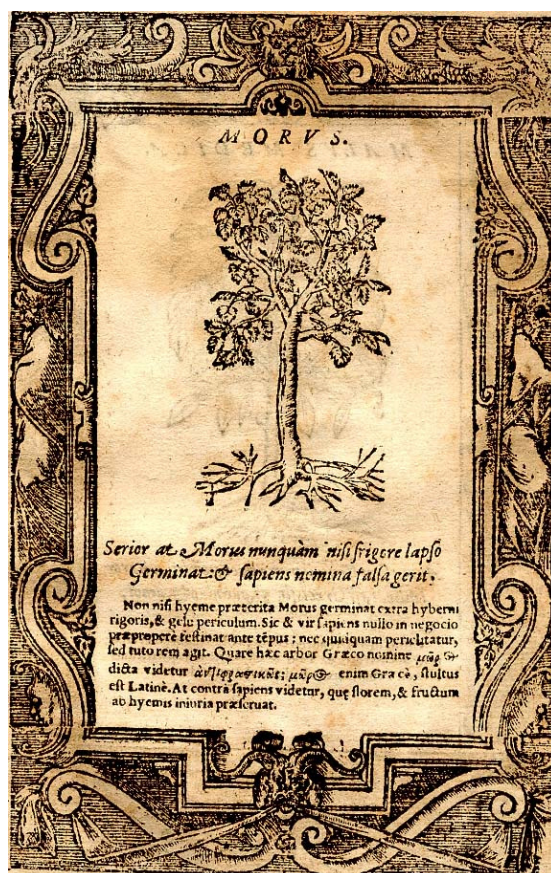 MORVS.
Serior at Morus nunquàm nisi frigore lapso
Germinat: & sapiens nomina falsa gerit.
Non nisi hyeme præterita Morus germinat extra hyberni
rigoris, & gelu periculum. Sic & vir sapiens nullo in negocio
præproperè festinat ante tẽpus; nec quidquam periclitatur,
sed tuto rem agit. Quare hæc arbor Græco nomine μῶρος
dicta videtur ἀντιφραστικῶς; μῶρος enim Græcè, stultus
est Latinè. At contrà sapiens videtur, quę florem, & fructum
ab hyemis iniuria præseruat.